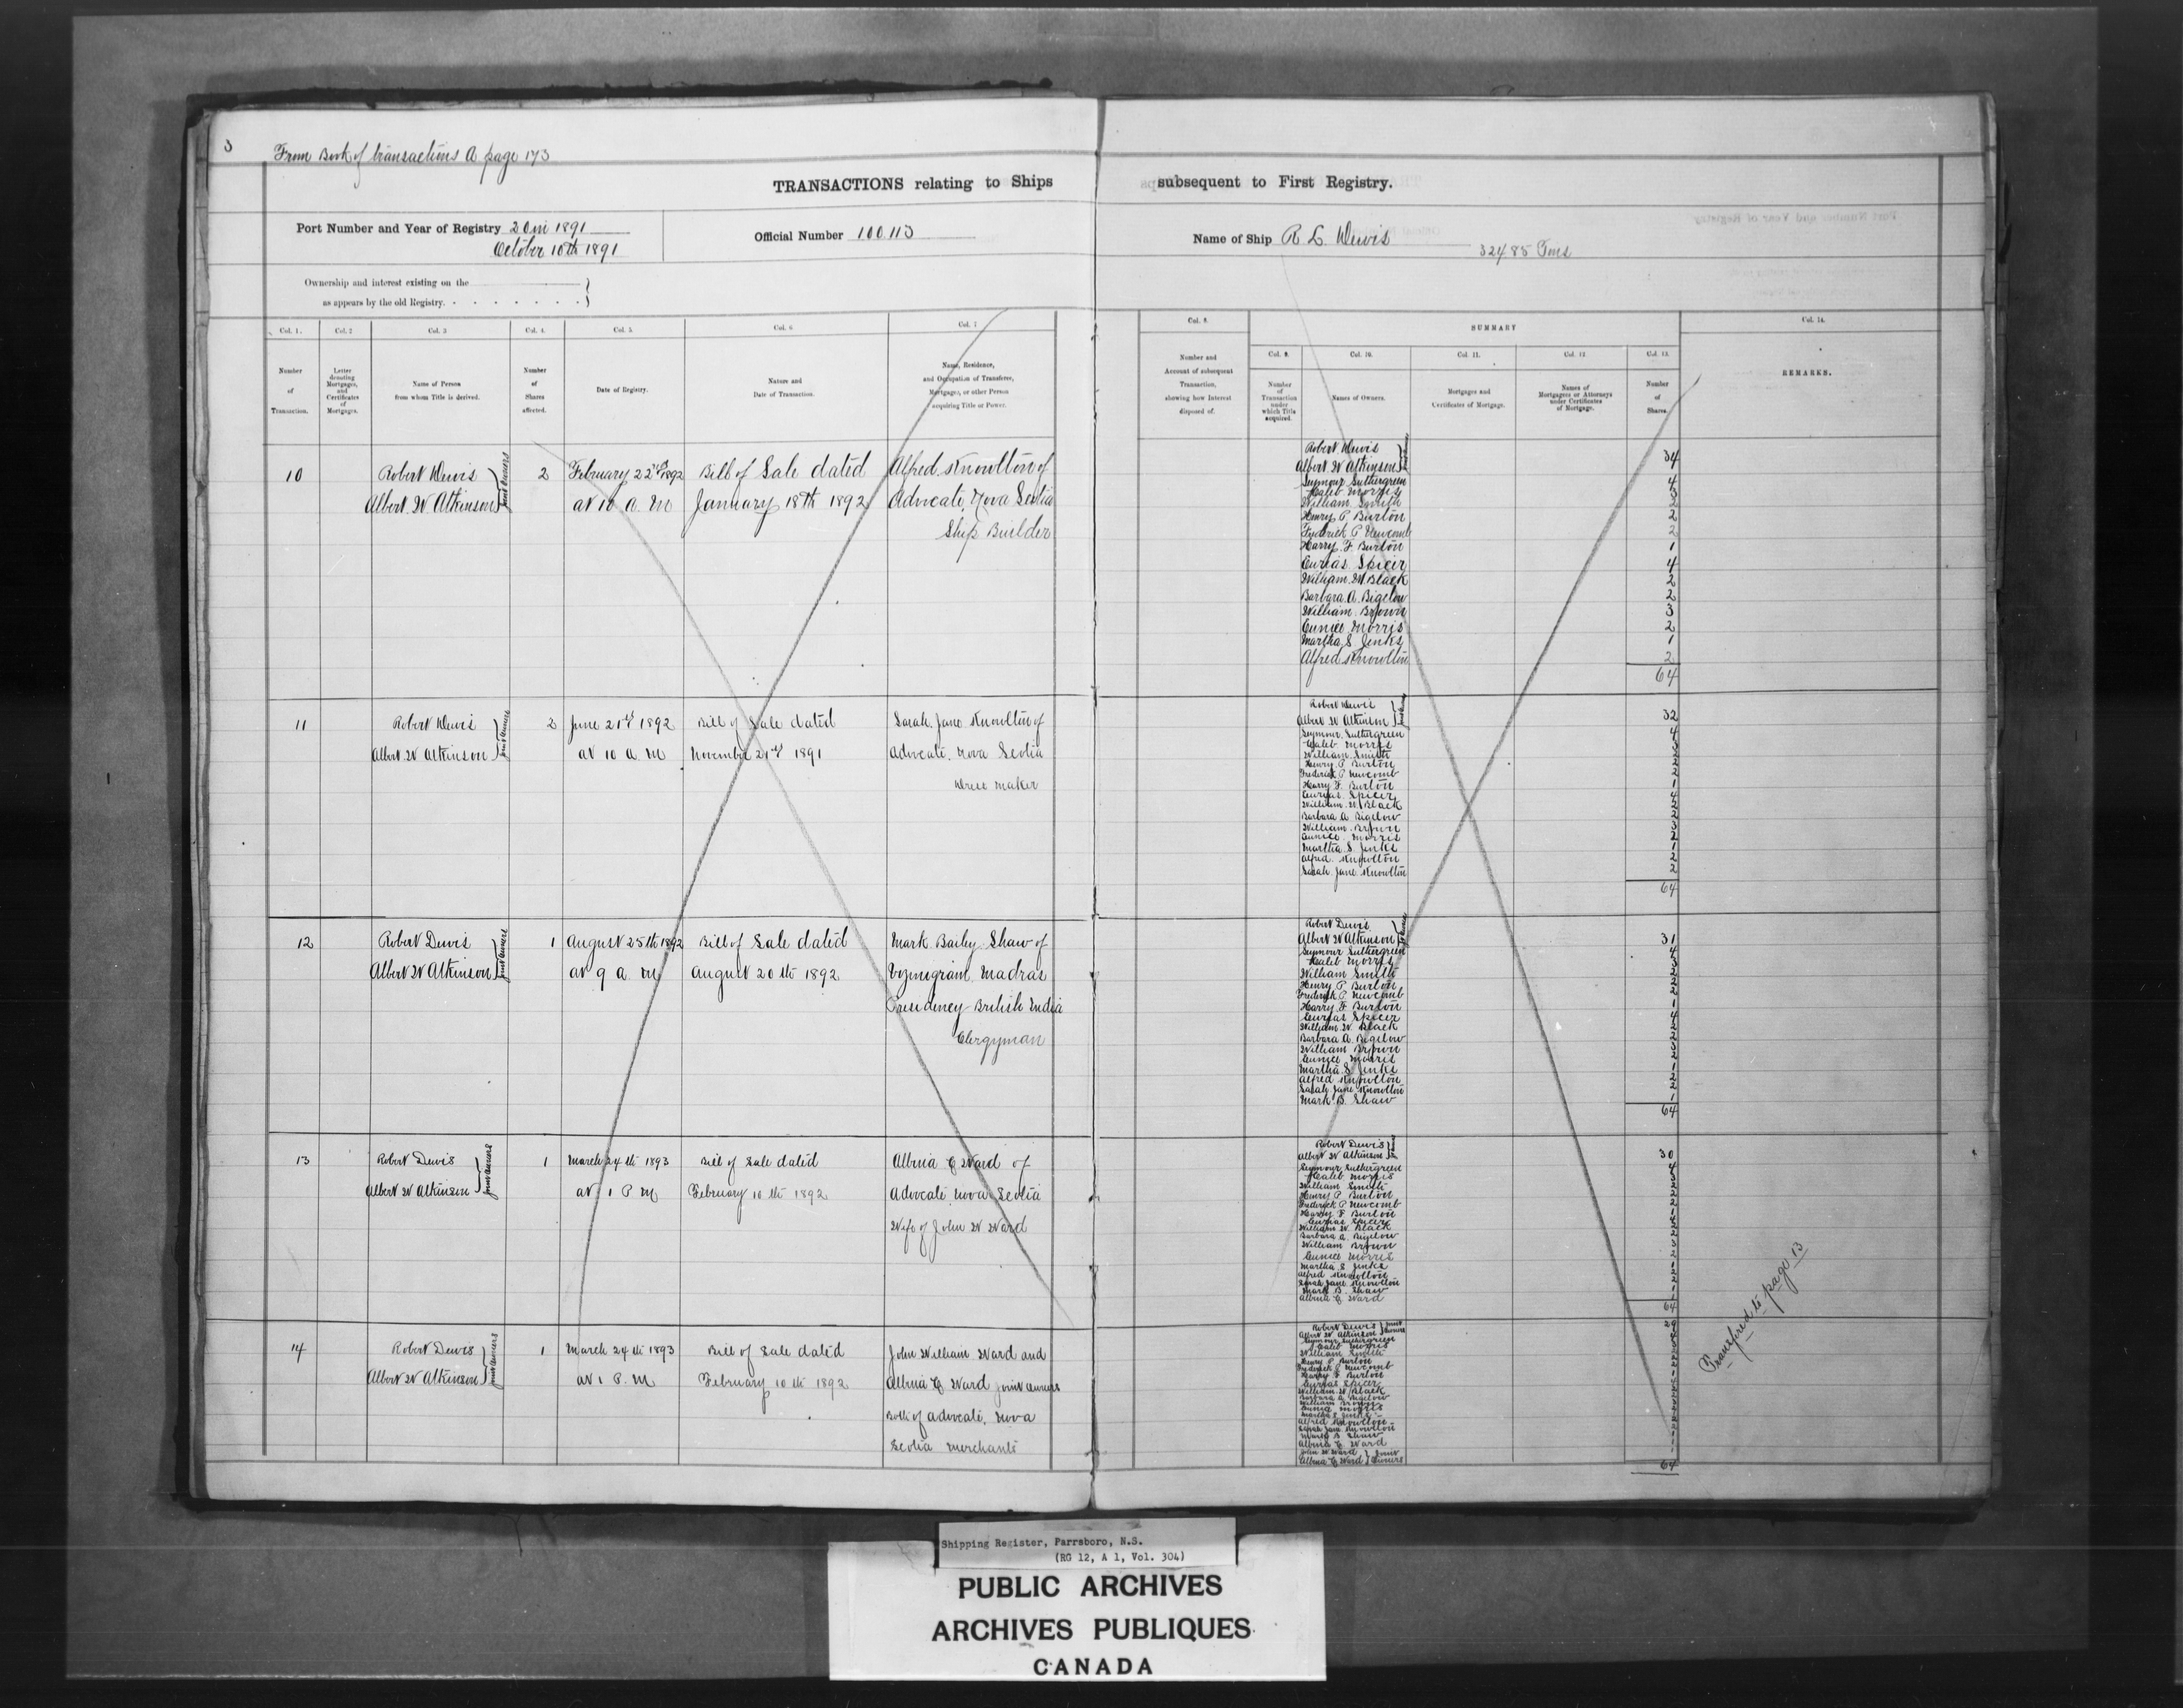 3
From Book of transactions A page 173
TRANSACTIONS relating to Ships subsequent to First Registry.
Port Number and Year of Registry 20 in 1891
October 10th 1891
Official Number 100.113
Name of Ship R L Dewis
324 85 Tons
Ownership and interest existing on the
as appears by the old Registry.
Col. 1. Col. 2 Col. 3 Col. 4. Col. 5 Col. 6 Col. 7 Col. 8. SUMMARY Col. 14.
Col. 9. Col. 10. Col. 11. Col. 12 Col. 13.
Number of Transaction.
Letter denoting Mortgages, and Certificates of Mortgages.
Name of Person from whom Title is derived.
Number of Shares affected.
Date of Registry.
Nature and Date of Transaction.
Name, Residence, and Occupation of Transferee, Mortgagee, or other Person acquiring Title or Power.
Number and Account of subsequent Transaction, showing how Interest disposed of.
Number of Transaction under which Title acquired.
Names of Owners.
Mortgages and Certificates of Mortgage.
Names of Mortgagees or Attorneys under Certificates of Mortgage.
Number of Shares.
REMARKS.
10 Robert Dewis 2 February 22nd 1892 Bill of Sale dated Alfred Knowlton of
Albert W Atkinson joint owners at 10 a. m January 18th 1892 Advocate, Nova Scotia
Ship Builder
Robert Dewis
Albert W Atkinson 34
Seymour Suthergreen 4
Caleb Morris 3
William Smith 2
Henry P Burton 2
Frederick P Newcomb 2
Harry F. Burton 1
Curias Spicer 4
William W. Black 2
Barbara A. Bigelow 2
William Brown 3
Eunice Morris 2
Martha S Jenks 1
Alfred Knowlton 2
64
11 Robert Dewis 2 June 21st 1892 Bill of Sale dated Sarah Jane Knowlton of
Albert W Atkinson joint owners at 10 a. m November 21st 1891 Advocate, Nova Scotia
Dress Maker
Robert Dewis
Albert W Atkinson 32
Seymour Suthergreen 4
Caleb Morris 3
William Smith 2
Henry P Burton 2
Frederick P Newcomb 2
Harry F. Burton 1
Curias Spicer 4
William W. Black 2
Barbara A. Bigelow 2
William Brown 3
Eunice Morris 2
Martha S. Jenks 1
Alfred Knowlton 2
Sarah Jane Knowlton 2
64
12 Robert Dewis 1 August 25th 1892 Bill of Sale dated Mark Bailey Shaw of
Albert W Atkinson joint owners at 9 a. m August 20th 1892 Vyznigram, Madras
Presidency British India
Clergyman
Robert Dewis
Albert W Atkinson 31
Seymour Suthergreen 4
Caleb Morris 3
William Smith 2
Henry P Burton 2
Frederick P. Newcomb 2
Harry F Burton 1
Curias Spicer 4
William W. Black 2
Barbara A. Bigelow 2
William Brown 3
Eunice Morris 2
Martha S Jenks 1
Alfred Knowlton 2
Sarah Jane Knowlton 2
Mark B. Shaw 1
64
13 Robert Dewis 1 March 24th 1893 Bill of Sale dated Albina C Ward of
Albert W Atkinson joint owners at 1 P M February 10th 1892 Advocate, Nova Scotia
Wife of John W Ward
Robert Dewis
Albert W Atkinson 30
Seymour Suthergreen 4
Caleb Morris 3
William Smith 2
Henry P Burton 2
Frederick P Newcomb 2
Harry F Burton 1
Curias Spicer 4
William W. Black 2
Barbara A. Bigelow 2
William Brown 3
Eunice Morris 2
Martha S Jenks 1
Alfred Knowlton 2
Sarah Jane Knowlton 2
Mark B. Shaw 1
Albina C Ward 1
64
14 Robert Dewis 1 March 24th 1893 Bill of Sale dated John William Ward and
Albert W Atkinson joint owners at 1 P. M February 10th 1892 Albina C Ward joint owners
Both of Advocate, Nova
Scotia Merchants
Robert Dewis joint
Albert W Atkinson owners 29
Seymour Suthergreen
Caleb Morris
William Smith
Henry P Burton
Frederick P Newcomb
Harry F Burton
Curias Spicer
William W. Black
Barbara A Bigelow
William Brown
Eunice Morris
Martha S Jenks
Alfred Knowlton
Sarah Jane Knowlton
Mark B Shaw
Albina C Ward
John W Ward joint
Albina C Ward owners
64
Transfered to page 13
Shipping Register, Parrsboro, N.S.
(RG 12, A 1, Vol. 304)
PUBLIC ARCHIVES
ARCHIVES PUBLIQUES
CANADA